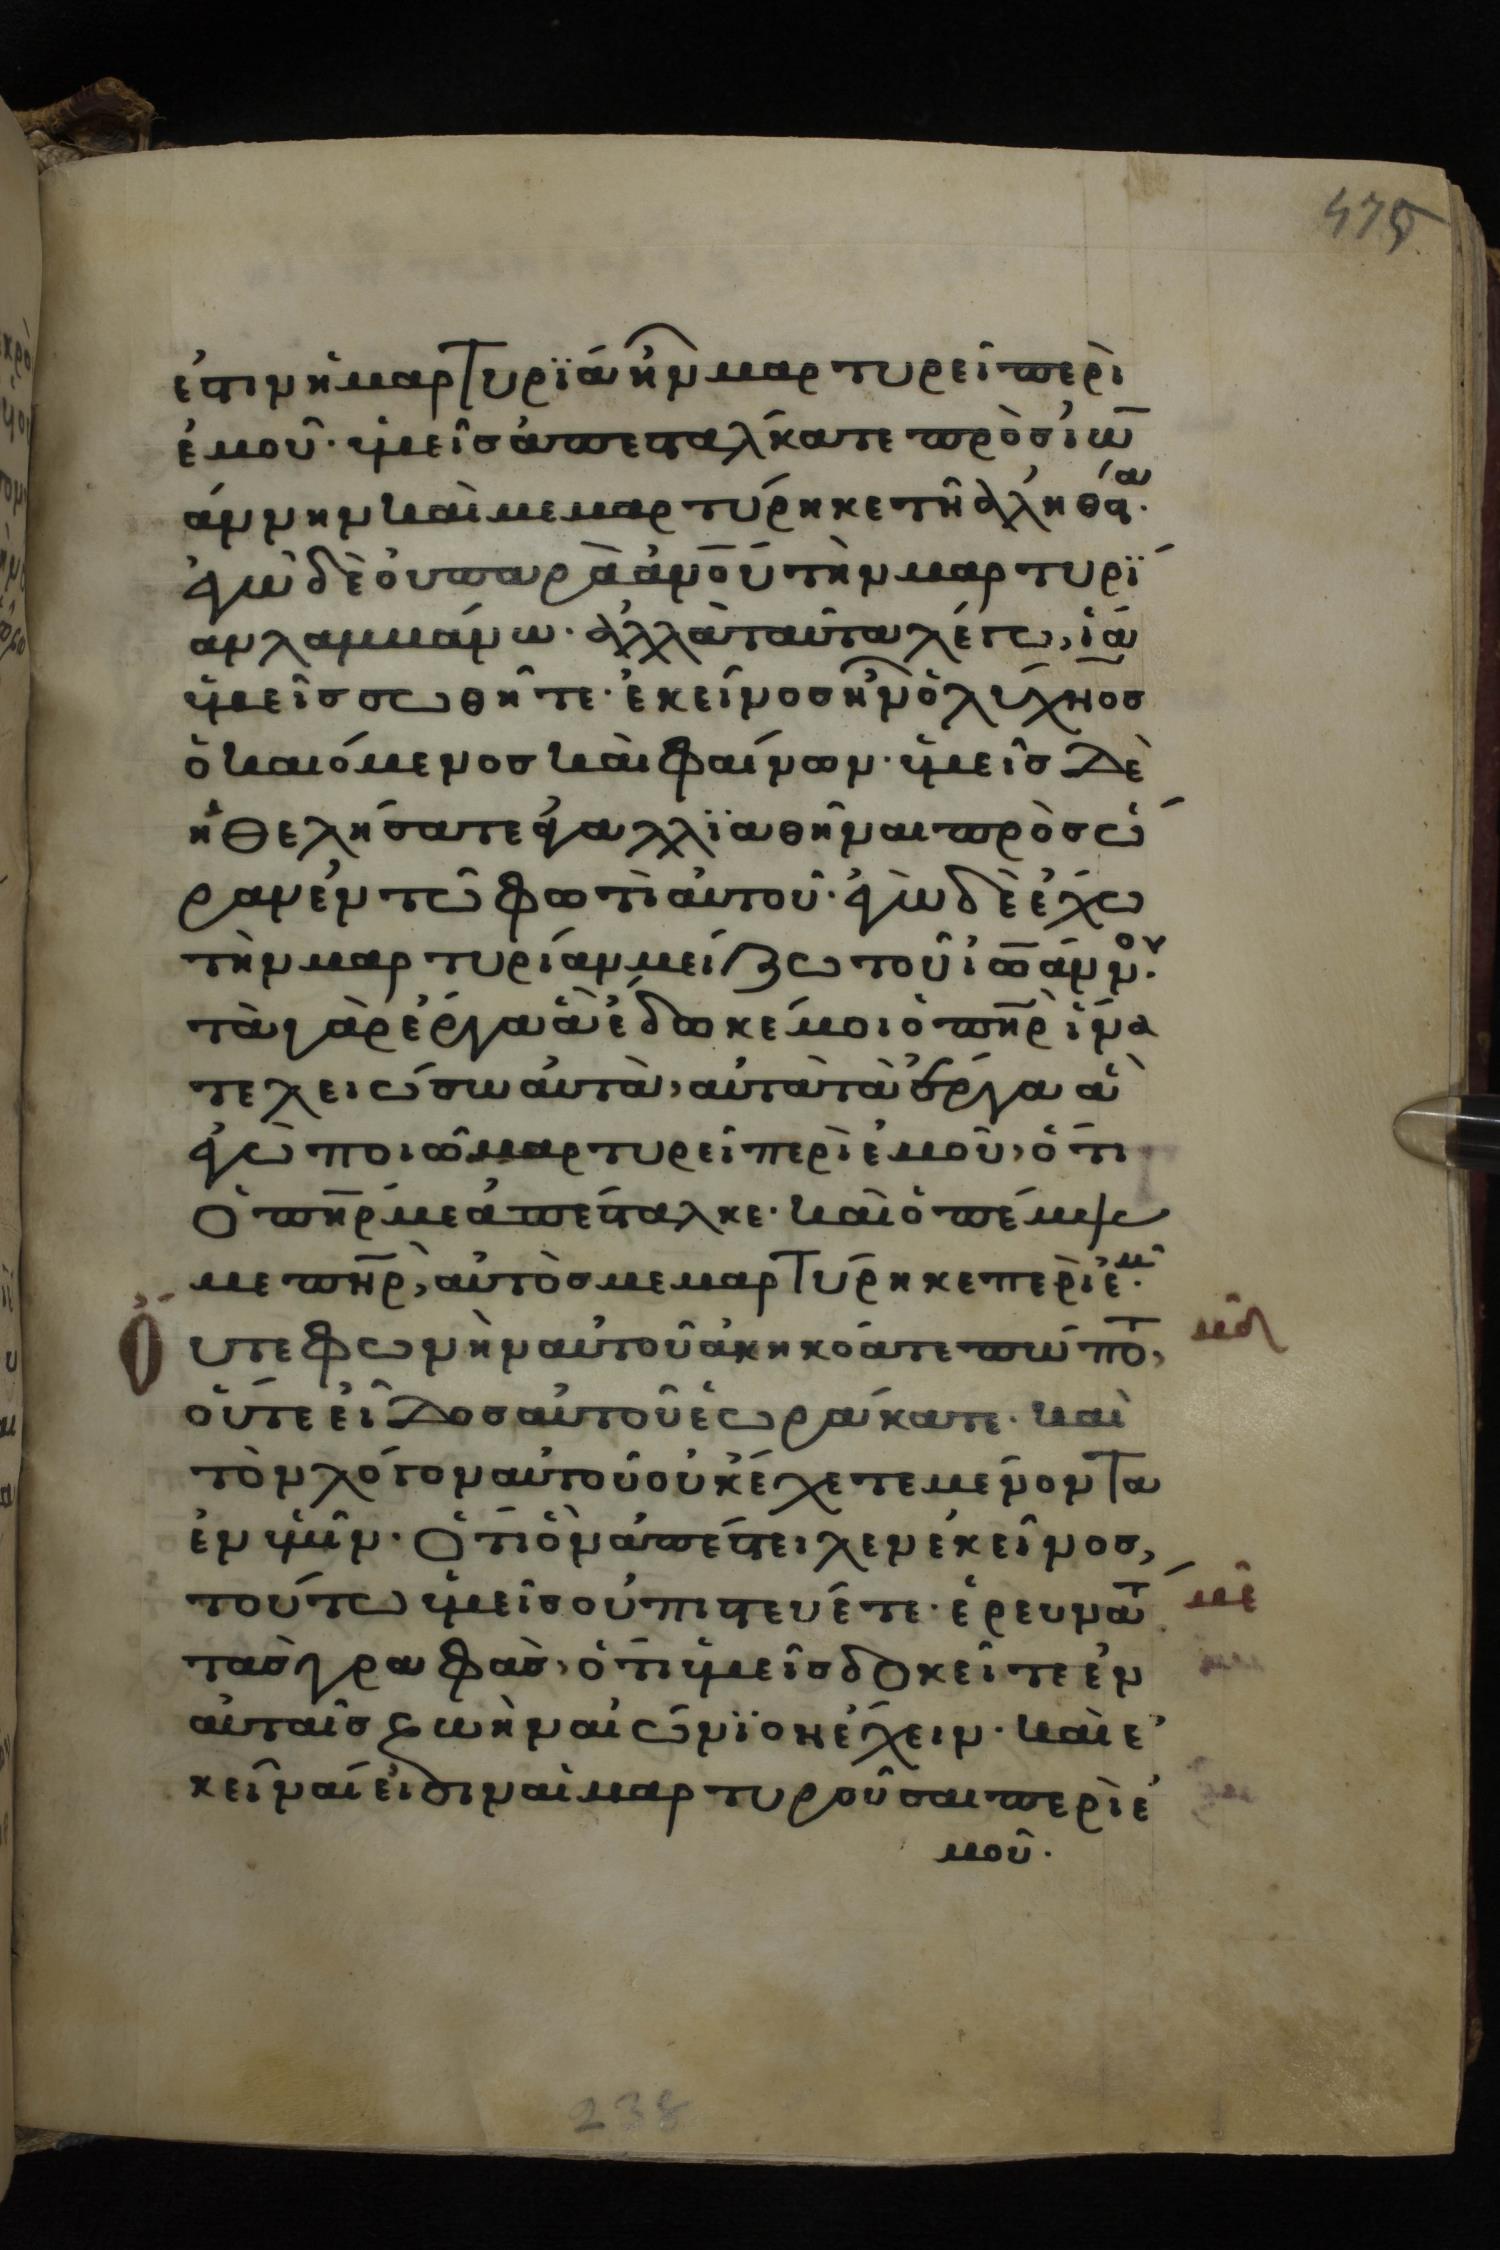 475
ἐστιν ἡ μαρτυρϊά ἣν μαρτυρεῖ περὶ
ἐμοῦ· ὑμεῖς ἀπεσταλκατε πρὸς ἰω
άννην καὶ μεμαρτύρηκε τῆ ἀληθεία·
ἐγὼ δὲ οὐ παρὰ ἀνου τὴν μαρτυρϊ
αν λαμβάνω· ἀλλὰ ταῦτα λέγω, ἵνα
ὑμεῖς σωθῆτε· ἐκεῖνος ἦν ὁ λύχνος
ὁ καιόμενος καὶ φαίνων· ὑμεῖς δὲ
ἠθελήσατε ἀγαλλϊαθῆναι πρὸς ὥ
ραν ἐν τῶ φωτὶ αὐτοῦ· ἐγὼ δὲ ἔχω
τὴν μαρτυρίαν μείζω τοῦ ἰωάννου·
τὰ γὰρ ἔργα ἃ ἔδωκέ μοι ὁ πηρ ἵνα
τελειώσω αὐτὰ, αὐτὰ τὰ ἔργα ἃ
ἐγὼ ποιῶ μαρτυρεῖ περὶ ἐμοῦ, ὅτι
ὁ πηρ με ἀπέσταλκε· καὶ ὁ πέμψας
με πηρ, αὐτὸς μεμαρτύρηκε περὶ ἐμοῦ·
Οὔτε φωνὴν αὐτοῦ ἀκηκόατε πώποτε,
οὔτε εἶδος αὐτοῦ ἑωράκατε· καὶ
τὸν λόγον αὐτοῦ οὐκ ἔχετε μένοντα
ἐν ὑμῖν· ὅτι ὃν ἀπέστειλεν ἐκεῖνος,
τούτω ὑμεῖς οὐ πιστεύετε· ἐρευνᾶτε
τὰς γραφὰς, ὅτι ὑμεῖς δοκεῖτε ἐν
αὐταῖς ζωὴν αἰώνϊον ἔχειν· καὶ ἐ
κεῖναί εἰσιν αἱ μαρτυροῦσαι περὶ ἐ
μοῦ·
238